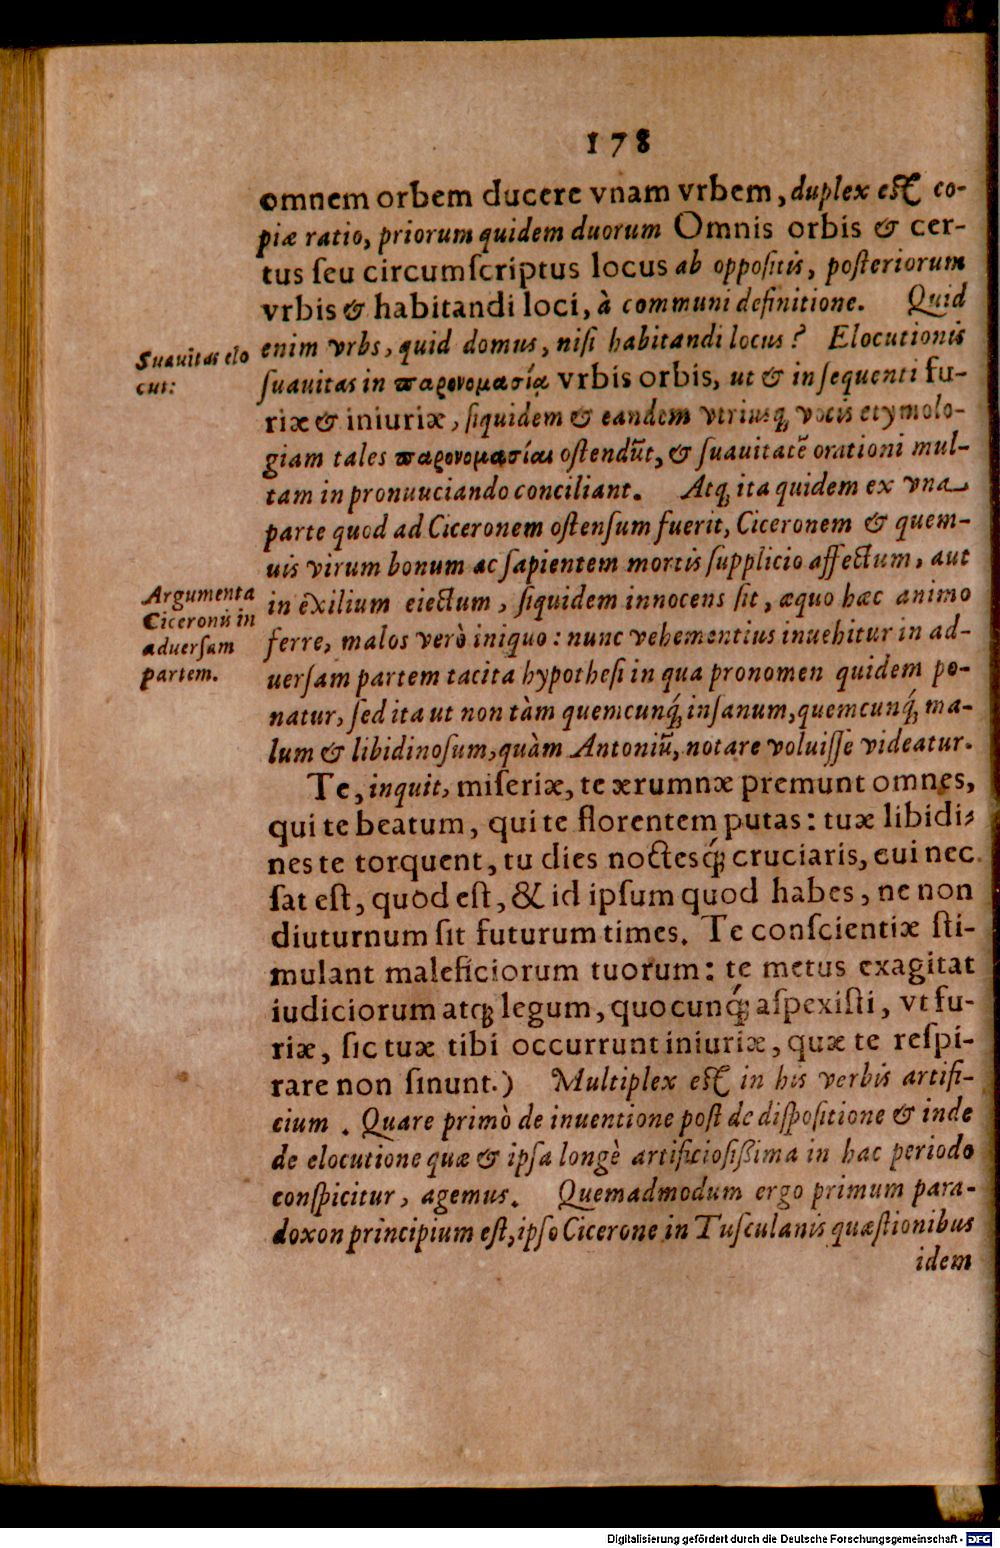 178
omnem orbem ducere vnam vrbem, duplex est co-
piæ ratio, priorum quidem duorum Omnis orbis & cer-
tus ſeu circumſcriptus locus ab oppoſitis, poſteriorum
vrbis & habitandi loci, à communi definitione. Quid
enim vrbs, quid domus, niſi habitandi locus? Elocutionis
Suauitas elo
cut:
ſuauitas in παρονομασία vrbis orbis, ut & in ſequenti fu-
riæ & iniuriæ, ſiquidem & eandem vtriusq; vocis etymolo-
giam tales παρονομασίαι oſtendũt, & ſuauitatẽ orationi mul-
tam in pronuuciando conciliant. Atq; ita quidem ex vna
parte quod ad Ciceronem oſtenſum fuerit, Ciceronem & quem-
uis virum bonum ac ſapientem mortis ſupplicio affectum, aut
Argumenta
Ciceronis in
aduerſam
partem.
in exilium eiectum, ſiquidem innocens ſit, æquo hæc animo
ferre, malos verò iniquo: nunc vehementius inuehitur in ad-
uerſam partem tacita hypotheſi in qua pronomen quidem po-
natur, ſed ita ut non tàm quemcunq́; inſanum, quemcunq́; ma-
lum & libidinoſum, quàm Antoniũ, notare voluiſſe videatur.
Te, inquit, miſeriæ, te ærumnæ premunt omnes,
qui te beatum, qui te florentem putas: tuæ libidi-
nes te torquent, tu dies noctesq́; cruciaris, cui nec
ſat eſt, quod eſt, & id ipſum quod habes, ne non
diuturnum ſit futurum times. Te conſcientiæ ſti-
mulant maleficiorum tuorum: te metus exagitat
iudiciorum atq; legum, quocunq́; aſpexiſti, vt fu-
riæ, ſic tuæ tibi occurrunt iniuriæ, quæ te reſpi-
rare non ſinunt.) Multiplex est in his verbis artifi-
cium. Quare primò de inuentione poſt de diſpoſitione & inde
de elocutione quæ & ipſa longè artificioſißima in hac periodo
conſpicitur, agemus. Quemadmodum ergo primum para-
doxon principium eſt, ipſo Cicerone in Tuſculanis quæſtionibus
idem
Digitalisierung gefördert durch die Deutsche Forschungsgemeinschaft - DFG